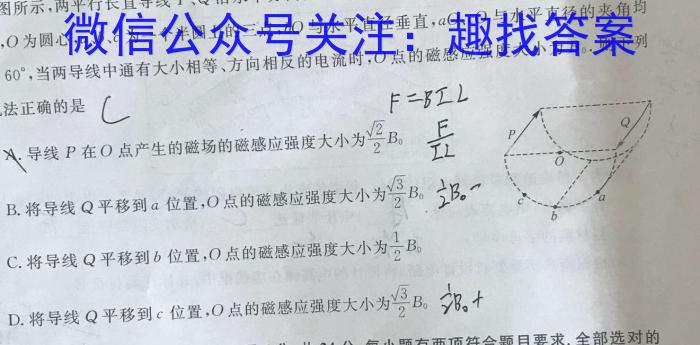 图所示,两平行长直导线
微信公众号关注：趣找答案
,O为圆心
水平直径垂直,
O与水平直径的夹角均
60°,当两导线中通有大小相等、方向相反的电流时,O点的磁感应强度大小为B₀,
列
法正确的是 C
F=BIL
F/IL
A. 导线P在O点产生的磁场的磁感应强度大小为√2/2 B₀
B. 将导线Q平移到a位置,O点的磁感应强度大小为√3/2 B₀ ½B₀
C. 将导线Q平移到b位置,O点的磁感应强度大小为1/2 B₀
D. 将导线Q平移到c位置,O点的磁感应强度大小为√3/2 B₀ ½B₀+
P
Q
O
c
a
b
分.每小题有两项符合题目要求.全部选对的